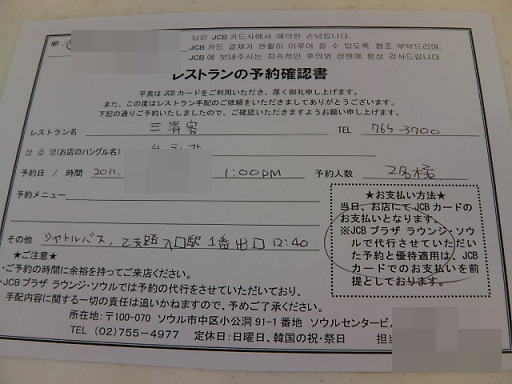 님은 JCB 카드사에서 예약한 손님입니다.
JCB 카드 결제가 원활히 이루어 질 수 있도록 협조 부탁드리며,
JCB에 보내주시는 지속적인 후의와 성원에 항상 감사드립니다
レストランの予約確認書
平素は JCBカードをご利用いただき、厚く御礼申し上げます。
また、この度はレストラン手配のご依頼をいただきましてありがとうございます。
下記の通りご予約いたしましたので、ご確認いただきますようお願い申し上げます。
レストラン名 三清客 TEL 765-3700
상호명(お店のハングル名)
予約日 / 時間 2011. 1:00PM 予約人数 2名様
予約メニュー
その他 シャトルバス, 乙支路入口駅 1番出口 12:40
★お支払い方法★
当日、お店にてJCBカードの
お支払いとなります。
※JCBプラザ ラウンジ・ソウ
ルで代行させていただいい
た予約と優待適用は、JCB
カードでのお支払いを前
提としております。
★ご注意★
・ご予約の時間に余裕を持ってご来店ください。
・JCBプラザ ラウンジ・ソウルでは予約の代行をさせていただいており、
手配内容に関する一切の責任は追いかねますので、予めご了承ください。
所在地:〒100-070 ソウル市中区小公洞 91-1 番地 ソウルセンタービ
TEL (02)755-4977 定休日:日曜日、韓国の祝・祭日 担当